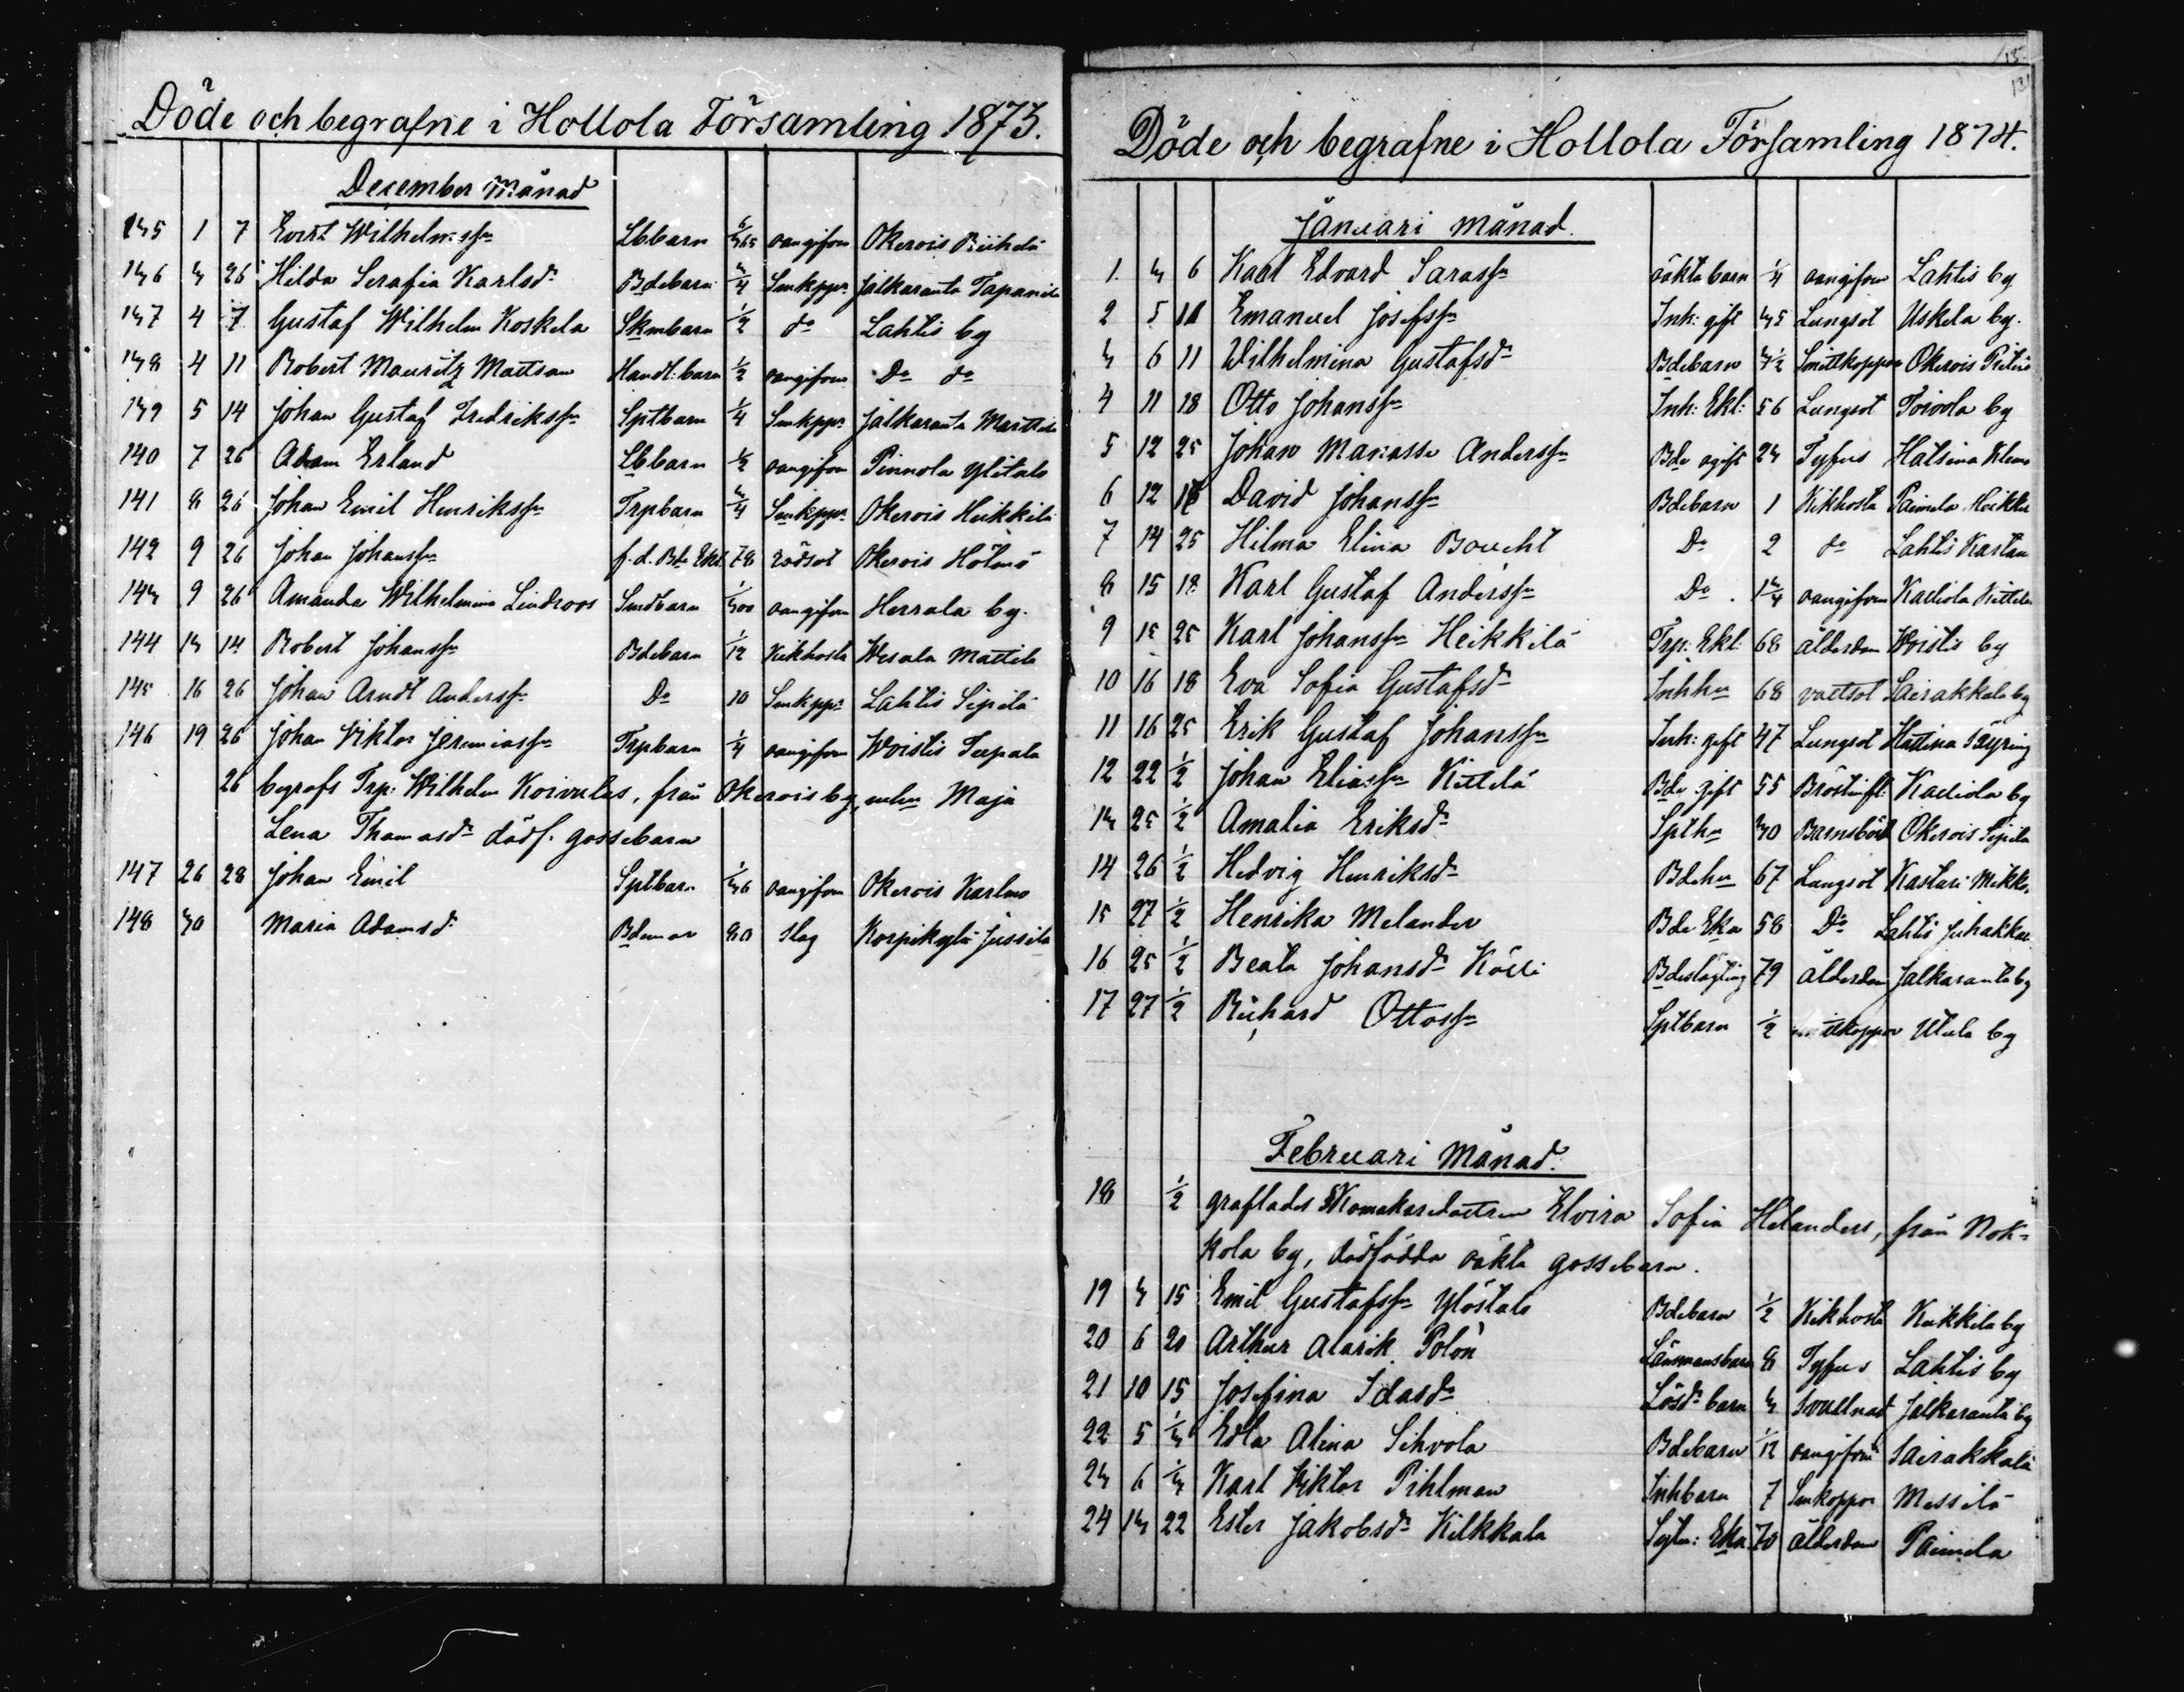 Döde och begrafne i Hollola Församling 1873.
December Månad
135 1 7 Evert Wilhelmssn Lbbarn 6/365 oangifven Okerois
136 3 26 Hilda Serafia Karlsdr Bdebarn 3/4 Smkppr Jalkaranta Tapanila
137 4 7 Gustaf Wilhelm Koskela Skmbarn 1/2 do Lahtis by
138 4 11 Robert Mauritz Mattsson Handl: barn 1/2 oangifven Do do
139 5 14 Johan Gustaf Fredrikssn Sptbarn 1/4 Smkppr Jalkaranta Marttila
140 7 26 Adam Erland Lbbarn 1/2 oangifven Pinnola Ylitalo
141 8 26 Johan Emil Henrikssn Trpbarn 3/4 Smkppr Okerois Heikkilä
142 9 26 Johan Johanssn f.d. Bde Ekl. 78 rödsot Okerois Hölmö
143 9 26 Amanda Wilhelmina Lindroos Smdbarn 1/300 oangifven Herrala by.
144 13 14 Robert Johanssn Bdebarn 1/12 Kikhosta Wesala Mattila
145 16 26 Johan Arndt Anderssn Do 10 Smkppr Lahtis Sipilä
146 19 26 Johan Viktor Jeremiassn Trpbarn 1/4 oangifven Woistis Seppälä
26 begrofs Trp: Wilhelm Koivulas, från Okerois by, Maja
Lena Thomasdr dödf. gossebarn
147 26 28 Johan Emil Sptbarn 1/36 oangifven Okerois Karlmo
148 30 Maria Adamsdr Bdemor 80 Slag Korpikylä Jussila
Döde och begrafne i Hollola Församling 1874.
Januari Månad.
1. 3 6 Karl Edvard Sarassn oäkta barn 1/4 oangifven Lahtis by
2 5 11 Emanuel Josefssn Inh: gift 35 Lungsot Uskila by.
3 6 11 Wilhelmina Gustafsdr Bdebarn 3 1/2 Smittkoppor Okerois
4 11 18 Otto Johanssn Inh: Ekl: 56 Lungsot Toivola by
5 12 25 Johan Manasse Anderssn Bde ogift 23 Tyfus Hatsina
6 12 18 David Johanssn Bdebarn 1 Kikhosta Paimela Heikkilä
7 14 25 Hilma Elina Boucht Do 2 do Lahtis Kastari
8 15 18 Karl Gustaf Anderssn Do 1 3/4 oangifven Kaliola Kittelä
9 15 25 Karl Johanssn Heikkilä Trp: Ekl: 68 ålderdom Woistis by
10 16 18 Eva Sofia Gustafsdr Inhhu 68 vattsot Sairakkala by
11 16 25 Erik Gustaf Johanssn Inh: gift 47 Lungsot Hatsina Säyring
12 22 1/2 Johan Eliassn Kittelä Bde gift 55 Bröstinfl: Kaliola by
13 25 1/2 Amalia Eriksdr Spthu 30 Barnsbörd Okerois Sipilä
14 26 1/2 Hedvig Henriksdr Bdehu 67 Lungsot Kastari Mikko.
15 27 1/2 Henrika Melander Bde Eka 58 Do Lahtis Juhakka
16 25 1/2 Beata Johansdr Kölli Bdeslägting 79 Ålderdom Jalkaranta by
17 27 1/2 Richard Ottossn Sptbarn 1/2 Smittkoppor Utula by
Februari Månad.
18 1/2 graflades Skomakaredottren Elvira Sofia Helanders, från Nok-
kola by, dödfödda oäkta gossebarn.
19 3 15 Emil Gustafssn Ylöstalo Bdebarn 1/2 Kikhosta Kukkila by
20 6 20 Arthur Alarik Polòn Länsmansbarn 8 Tyfus Lahtis by
21 10 15 Josefina Idasdr Lösdr barn 3 Svullnad Jalkaranta by
22 5 1/3 Edla Alina Sihvola Bdebarn 1/12 oangifven Sairakkala
23 6 1/3 Karl Viktor Pihlman Inhbarn 7 Smkoppor Messilä
24 13 22 Ester Jakobsdr Kilkkala Sytn: Eka 70 ålderdom Paimela